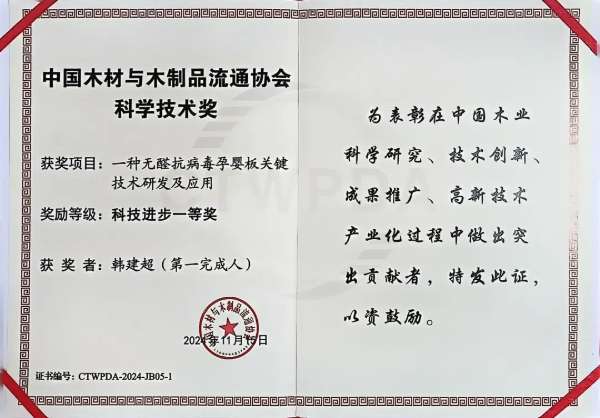 中国木材与木制品流通协会
科学技术奖
获奖项目：一种无醛抗病毒孕婴板关键
技术研发及应用
奖励等级：科技进步一等奖
获 奖 者：韩建超（第一完成人）
中国木材与木制品流通协会
2024年11月15日
证书编号：CTWPDA-2024-JB05-1
CTWPDA
为表彰在中国木业
科学研究、技术创新、
成果推广、高新技术
产业化过程中做出突
出贡献者，特发此证，
以资鼓励。